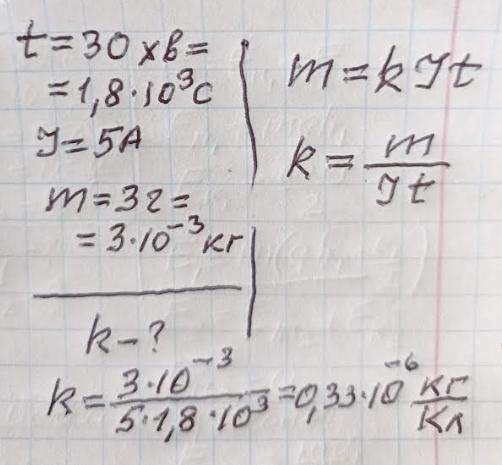 t = 30 хв =
= 1,8·10³ с
I = 5А
m = 3г =
= 3·10⁻³ кг
k - ?
m = k I t
k = m / I t
k = 3·10⁻³ / 5·1,8·10³ = 0,33·10⁻⁶ кг/Кл